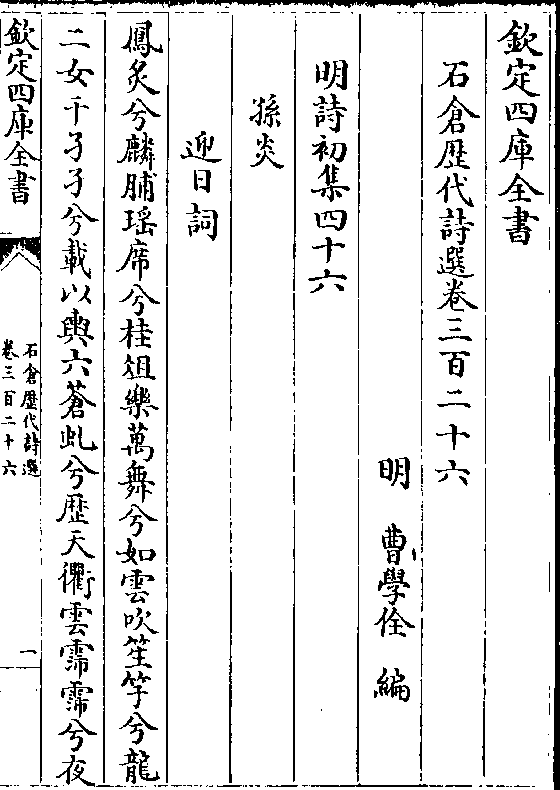 欽定四庫全書
石倉歴代詩選卷三百二十六
明　曹學佺　編
明詩初集四十六
孫炎
迎日詞
鳳炙兮麟脯瑶席兮桂俎樂萬舞兮如雲吹笙竽兮龍
二女干孑孑兮載以輿六蒼虬兮歴天衢雲霈霈兮夜
欽定四庫全書
石倉歴代詩選
卷三百二十六
一